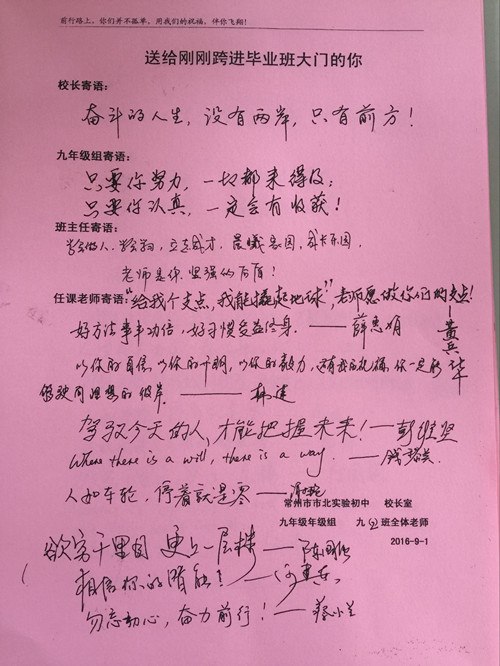 前行路上，你们并不孤单，用我们的祝福，伴你飞翔！
送给刚刚跨进毕业班大门的你
校长寄语：
奋斗的人生，没有两岸，只有前方！
九年级组寄语：
只要你努力，一切都来得及；
只要你认真，一定会有收获！
班主任寄语：
学会做人，立志成才，
老师是你坚强的后盾！
任课老师寄语："给我个支点，我能撬起地球"，老师愿做你们的支点！
——黄兵华
好方法事半功倍，好习惯受益终身。——薛惠娟
以你的自信，以你的开朗，以你的毅力，还有我的祝福，你一定能
够驶向理想的彼岸。——林
驾驭今天的人，才能把握未来！——彭
Where there is a will, there is a way. ——钱
人如车轮，停着就是零——
常州市市北实验初中 校长室
九年级年级组 九 班全体老师
2016-9-1
欲穷千里目 更上一层楼——陈
相信你的潜能！——
勿忘初心，奋力前行！——蔡小兰